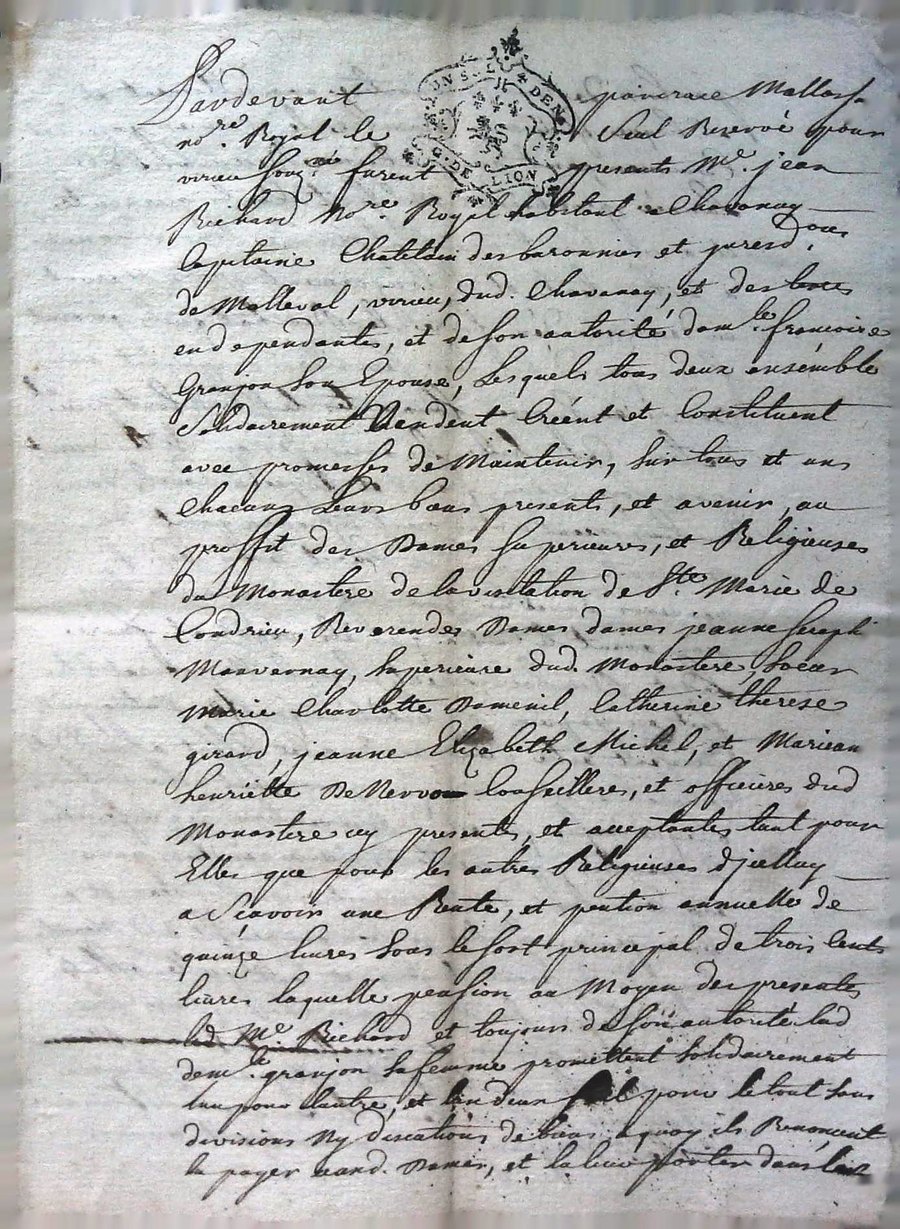 Pardevant pancrace Mallass
UN SOL . DEN
G. DE LION
no.re Royal le Seul Reservé pour
virieu souz.né furent presents Me. jean
Richard No.re Royal habitant a Chavanay
Capitaine Chatelain des baronnies et jurisd.ons
de Malleval, virieu, dud. Chavanay, et des terres
en dependantes, et de son autorité dam.le francoise
Granjon son Epouse, Lesquels tous deux ensemble
Solidairement Vendent Créent et Constituent
avec promesses de Maintenir, sur tous et uns
Chacuns Leurs biens presents, et avenir, au
proffit des Dames superieures, et Religieuses
du Monastere de la visitation de Ste. Marie de
Condrieu, Reverendes Dames dames jeanne seraphi
Mauvernay, superieure dud. Monastere, soeur
Marie Charlotte Dameinil, Catherine therese
girard, jeanne Elizabeth Michel, et Mariean
henriette De Nervo Conseilleres, et officieres dud
Monastere icy presentes, et acceptantes tant pour
Elles que pour les autres Religieuses d'jcelluy
a Scavoir une Rente, et pention annuelle de
quinze livres sous le sort principal de trois Cents
livres laquelle pension au Moyen des presentes
led Me. Richard et toujours de son autorité lad
dem.le granjon sa femme promettent solidairement
lun pour lautre, et lun deux seul pour le tout sans
divisions Ny discutions de biens a quoy ils Renoncent
la payer auxd. Dames, et la leur porter dans leur